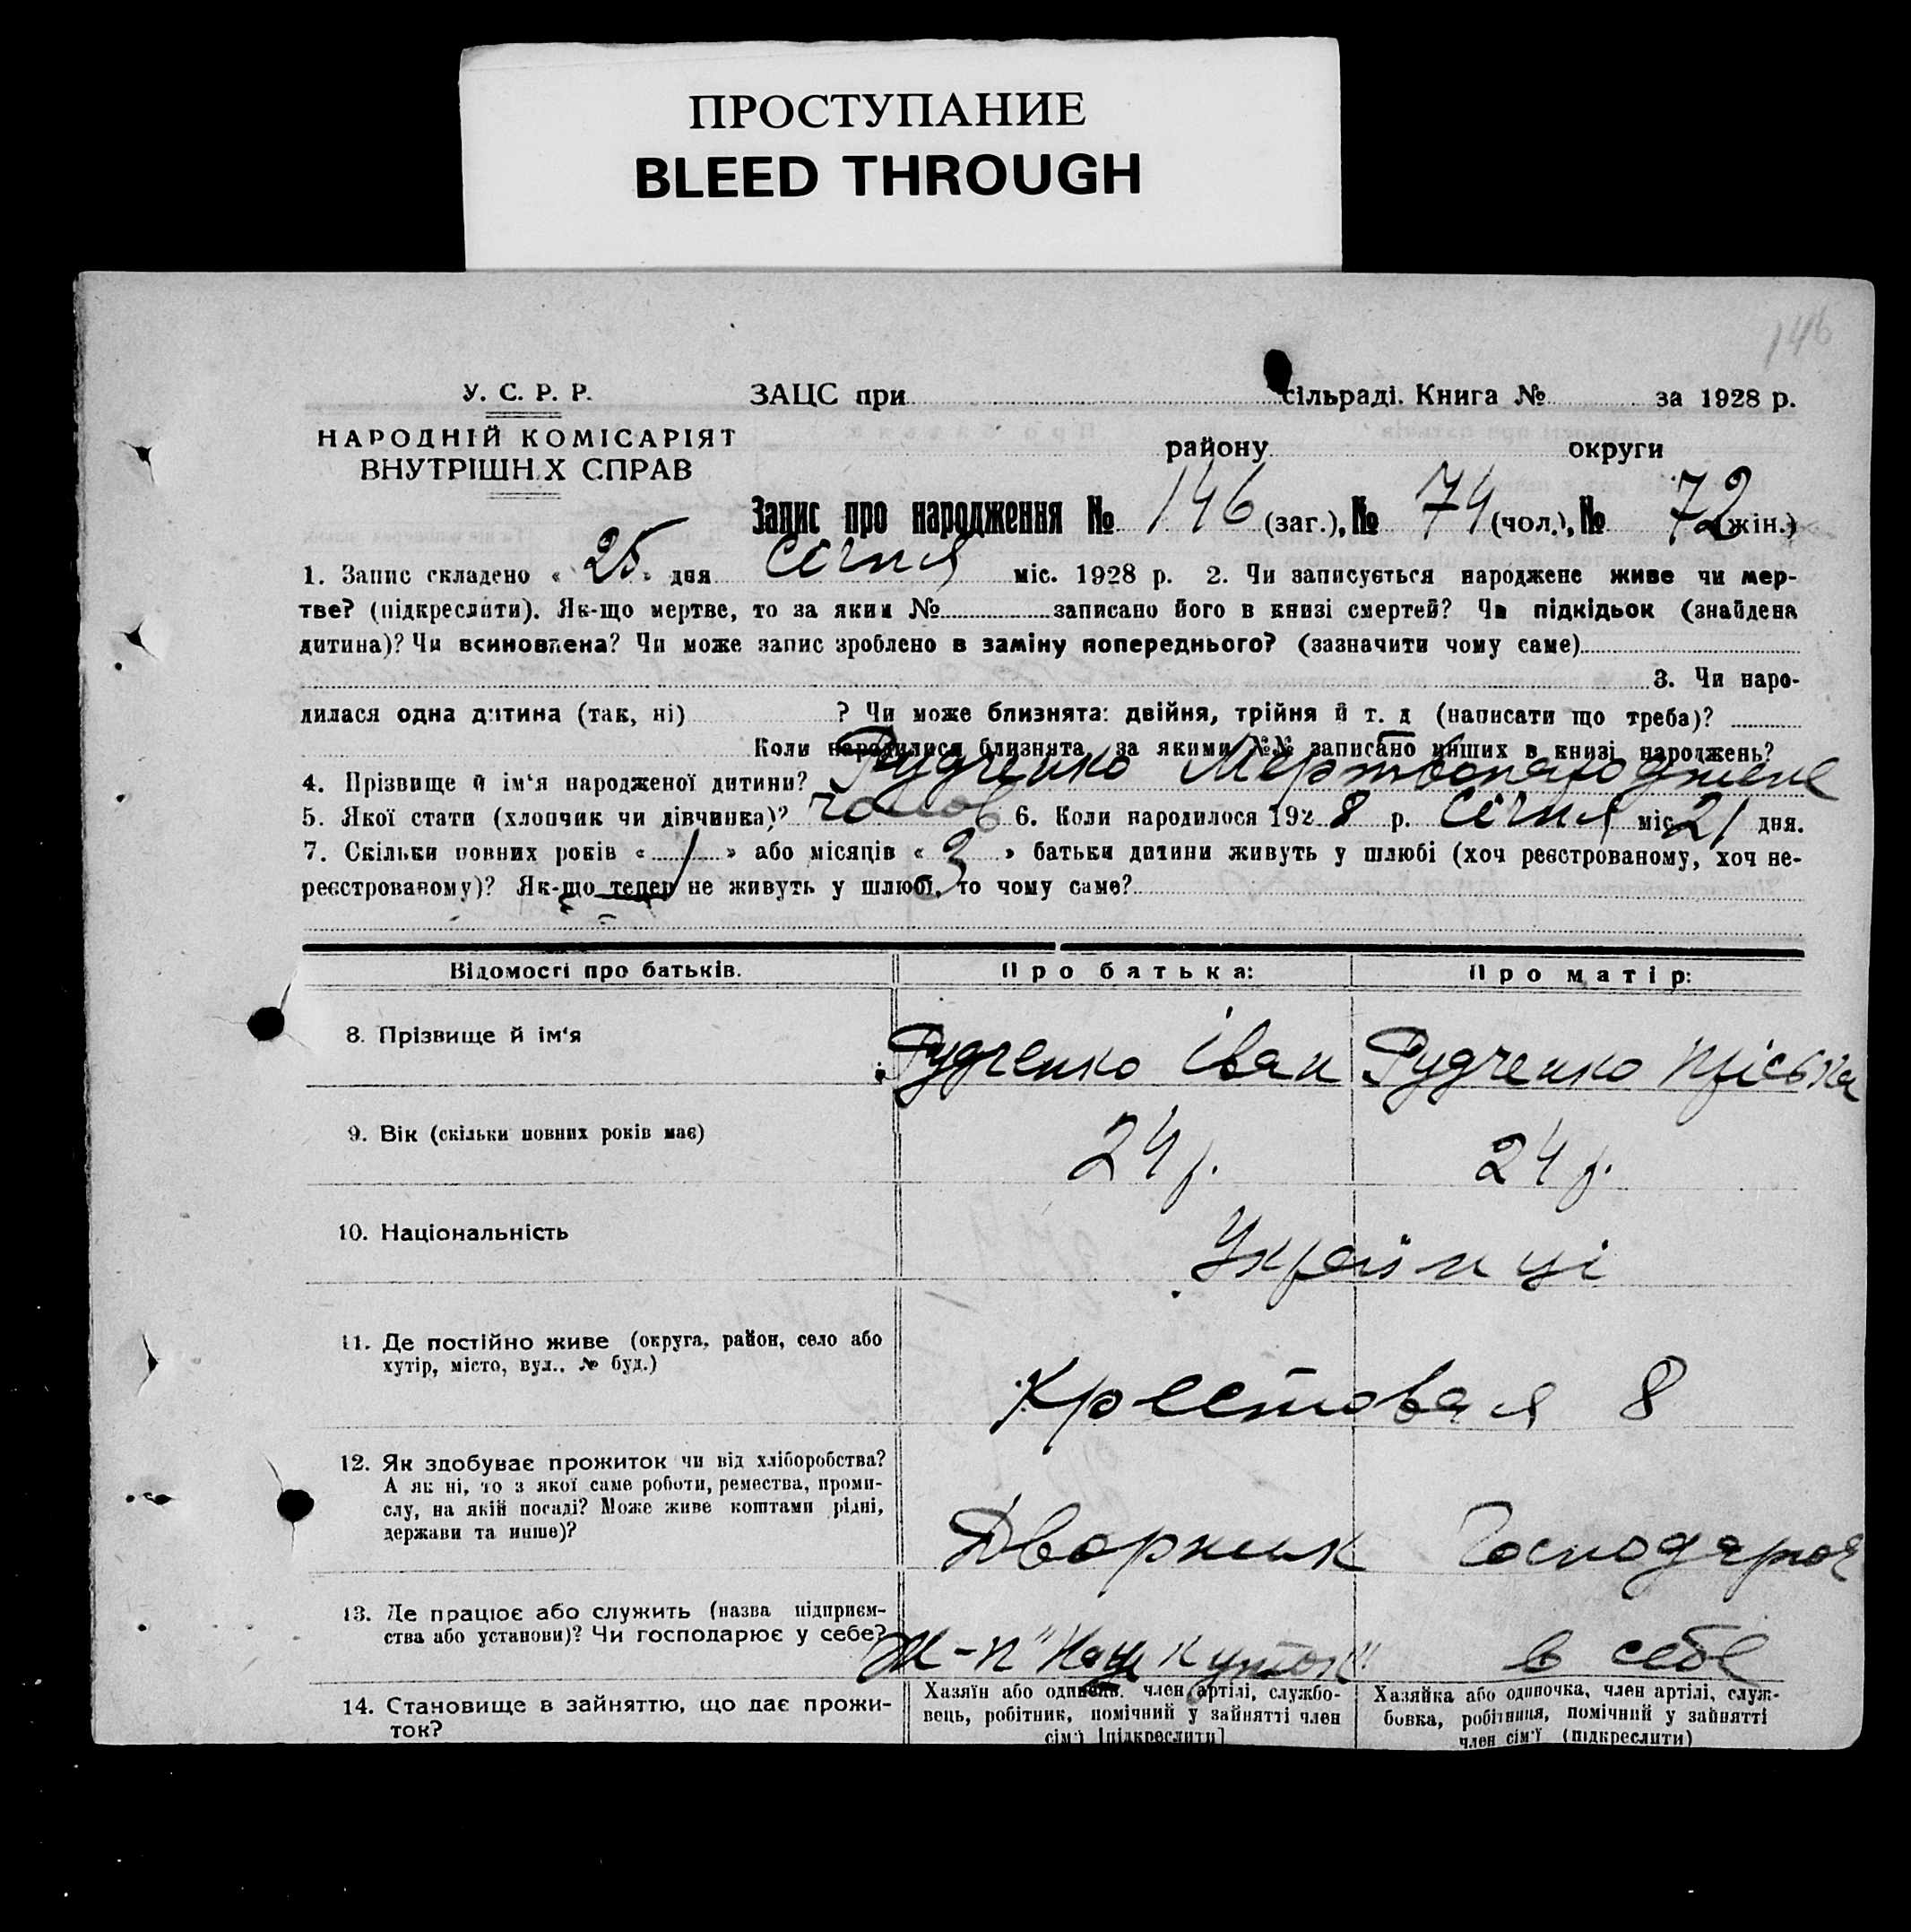 ПРОСТУПАНИЕ
BLEED THROUGH
146
У. С. Р. Р.
НАРОДНІЙ КОМІСАРІЯТ
ВНУТРІШН Х СПРАВ
ЗАЦС при сільраді. Книга № за 1928 р.
району округи
Запис про народження № 146 (заг.), № 74 (чол.), № 72 (жін.)
1. Запис складено « 25 » дня січня міс. 1928 р. 2. Чи записується народжене живе чи мер-
тве? (підкреслити). Як-що мертве, то за яким № записано його в книзі смертей? Чи підкідьок (знайдена
дитина)? Чи всиновлена? Чи може запис зроблено в заміну попереднього? (зазначити чому саме)
3. Чи наро-
дилася одна дитина (так, ні) ? Чи може близнята: двійня, трійня й т. д (написати що треба)?
Коли народилися близнята, за якими №№ записано инших в книзі народжень?
4. Прізвище й ім‘я народженої дитини? Рудченко Мертвонароджене
5. Якої стати (хлопчик чи дівчинка)? чолов 6. Коли народилося 1928 р. січня міс 21 дня.
7. Скільки повних років « 1 » або місяців « 3 » батьки дитини живуть у шлюбі (хоч реєстрованому, хоч не-
реєстрованому)? Як-що тепер не живуть у шлюбі, то чому саме?
Відомості про батьків. Про батька: Про матір:
8. Прізвище й ім‘я Рудченко Іван Рудченко
9. Вік (скільки повних років має) 24 р. 24 р.
10. Національність Українці
11. Де постійно живе (округа, район, село або
хутір, місто, вул., № буд.)
Крестовая 8
12. Як здобуває прожиток чи від хліборобства?
А як ні, то з якої саме роботи, ремества, проми-
слу, на якій посаді? Може живе коштами рідні,
держави та инше)?
Дворник Господарює
13. Де працює або служить (назва підприєм-
ства або установи)? Чи господарює у себе?
Ж-п "Наш куток" в себе
14. Становище в зайняттю, що дає прожи-
ток?
Хазяїн або одинець, член артілі, службо-
вець, робітник, помічний у зайнятті член
сім'ї [підкреслити]
Хазяйка або одиночка, член артілі, служ-
бовка, робітниця, помічний у зайнятті
член сім'ї (підкреслити)